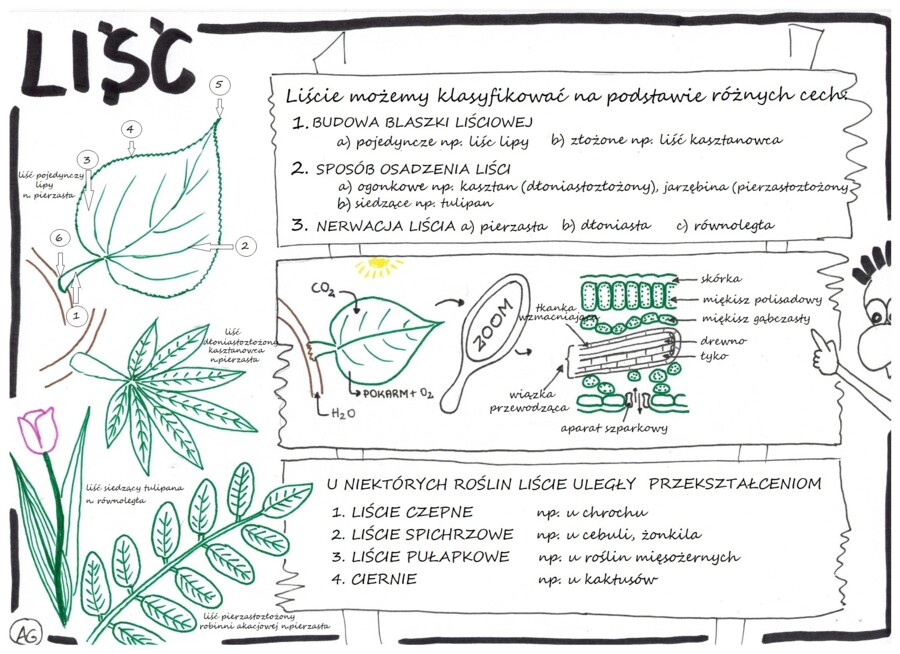 LIŚĆ
5
4
3
liść pojedynczy
lipy
n. pierzasta
6
2
1
Liście możemy klasyfikować na podstawie różnych cech:
1. BUDOWA BLASZKI LIŚCIOWEJ
a) pojedyncze np. liśc lipy b) złożone np. liść kasztanowca
2. SPOSÓB OSADZENIA LIŚCI
a) ogonkowe np. kasztan (dłoniastozłożony), jarzębina (pierzastozłożony
b) siedzące np. tulipan
3. NERWACJA LIŚCIA a) pierzasta b) dłoniasta c) równoległa
CO2
POKARM + O2
H2O
ZOOM
tkanka
wzmacniająca
skórka
miękisz polisadowy
miękisz gąbczasty
drewno
łyko
wiązka
przewodząca
aparat szparkowy
liść
dłoniastozłożony
kasztanowca
n.pierzasta
liść siedzący tulipana
n. równoległa
liść pierzastozłożony
robinni akacjowej n.pierzasta
U NIEKTÓRYCH ROŚLIN LIŚCIE ULEGŁY PRZEKSZTAŁCENIOM
1. LIŚCIE CZEPNE np. u chrochu
2. LIŚCIE SPICHRZOWE np. u cebuli, żonkila
3. LIŚCIE PUŁAPKOWE np. u roślin mięsożernych
4. CIERNIE np. u kaktusów
AG